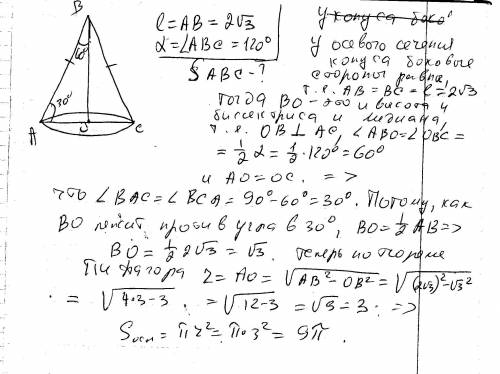 у конуса боков
B
l = AB = 2√3
α = ∠ABC = 120°
S ABC - ?
60°
30°
A
O
C
У осевого сечения
конуса боковые
стороны равны,
т.е. AB = BC = l = 2√3
тогда BO - это и высота и
биссектриса и медиана,
т.е. OB ⊥ AC, ∠ABO = ∠OBC =
= 1/2 α = 1/2 · 120° = 60°
и AO = OC. =>
что ∠BAC = ∠BCA = 90° - 60° = 30°. Потому, как
BO лежит против угла в 30°, BO = 1/2 AB =>
BO = 1/2 2√3 = √3. теперь по теореме
Пифагора r = AO = √AB² - OB² = √(2√3)² - √3²
= √4·3-3 = √12-3 = √9 = 3. =>
Sосн = πr² = π·3² = 9π.